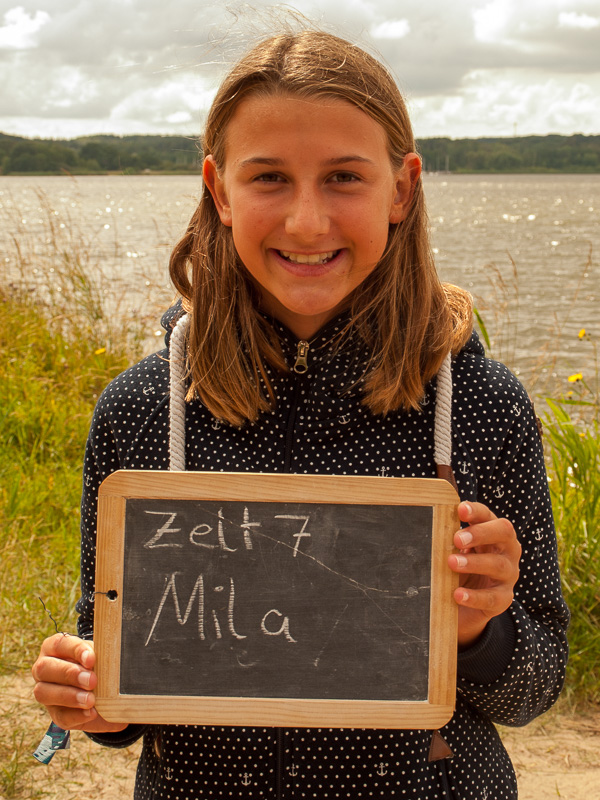 Zelt 7
Mila